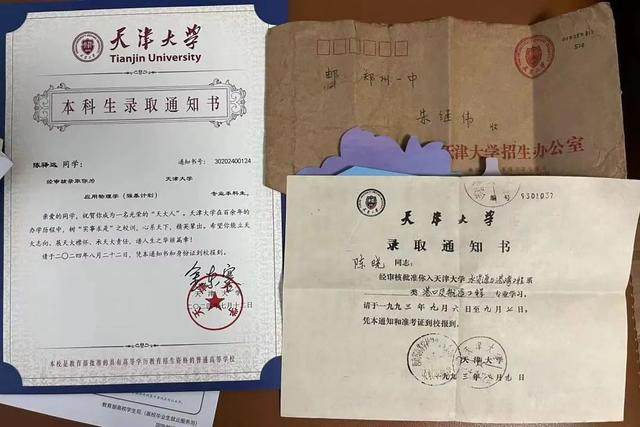 天津大学
Tianjin University
本科生录取通知书
陈驿远 同学:
通知书号: 30202400124
经审核录取你为 天津大学
应用物理学(强基计划) 专业本科生。
亲爱的同学,祝贺你成为一名光荣的“天大人”。天津大学在百余年的
办学历程中,树“实事求是”之校训,心系天下,精英辈出。希望你能立天
大志向、展天大襟怀、承天大责任,谱人生之华丽篇章!
请于二〇二四年八月二十二日,凭本通知书和身份证到校报到。
本校是教育部批准的具有高等学历教育招生资格的普通高等学校
教育部高校学生司(高校毕业生就业服务司)
郑州一中
朱继伟 收
天津大学招生办公室
编号 9301037
天津大学
录取通知书
陈晓 同志:
经审核批准你入天津大学 系
类 港口及航道工程 专业学习。
请于一九九三年九月六日至九月七日,
凭本通知和准考证到校报到。
天津大学
一九九三年八月九日